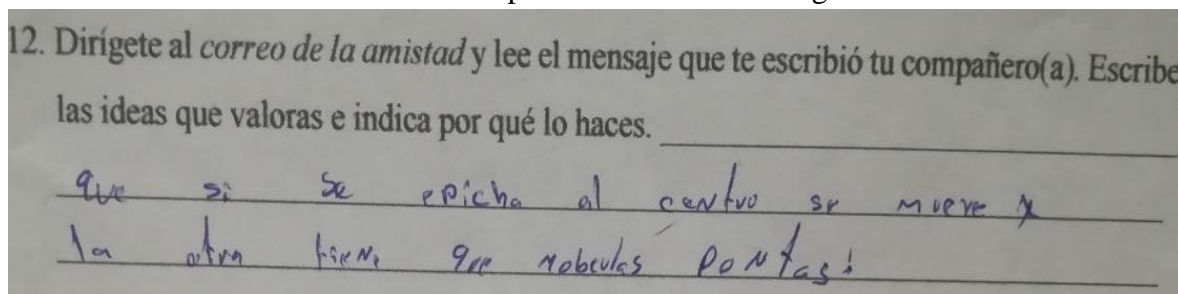 12. Dirígete al correo de la amistad y lee el mensaje que te escribió tu compañero(a). Escribe
las ideas que valoras e indica por qué lo haces.
que si se epicha al centro se mueve y
la otra tiene que PoNtas!